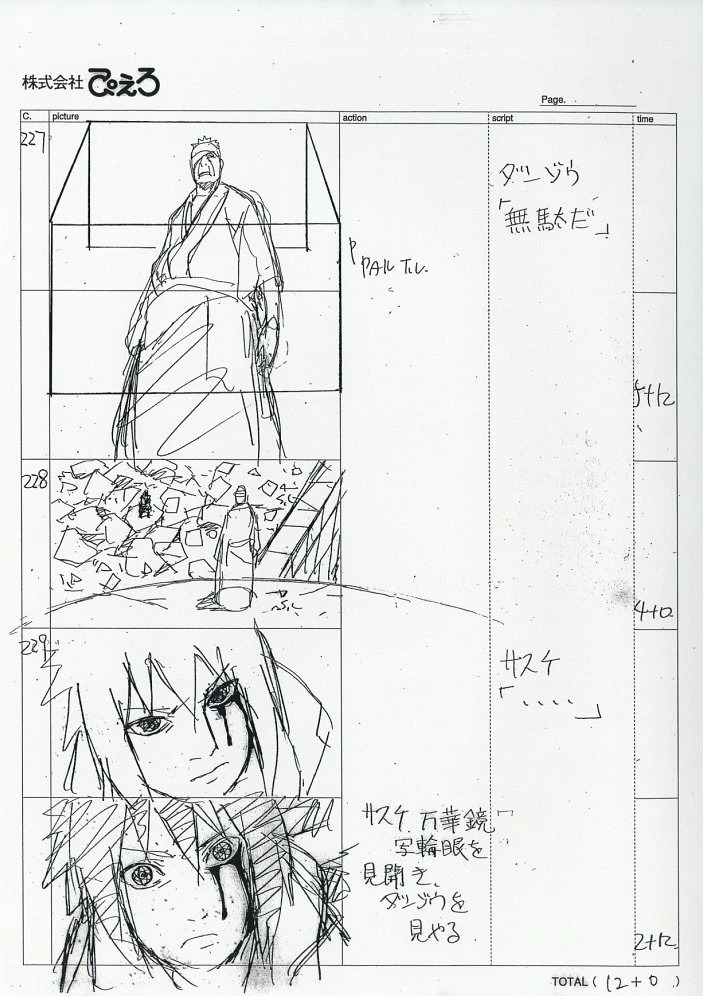 株式会社 ぴえろ
Page.
C. picture action script time
227
ダンゾウ
「無駄だ」
PAN T.U.
5+12
228
4+0
229
サスケ
「、、、、」
サスケ 万華鏡
写輪眼を
見開き、
ダンゾウを
見やる
2+12
TOTAL ( 12+0 )